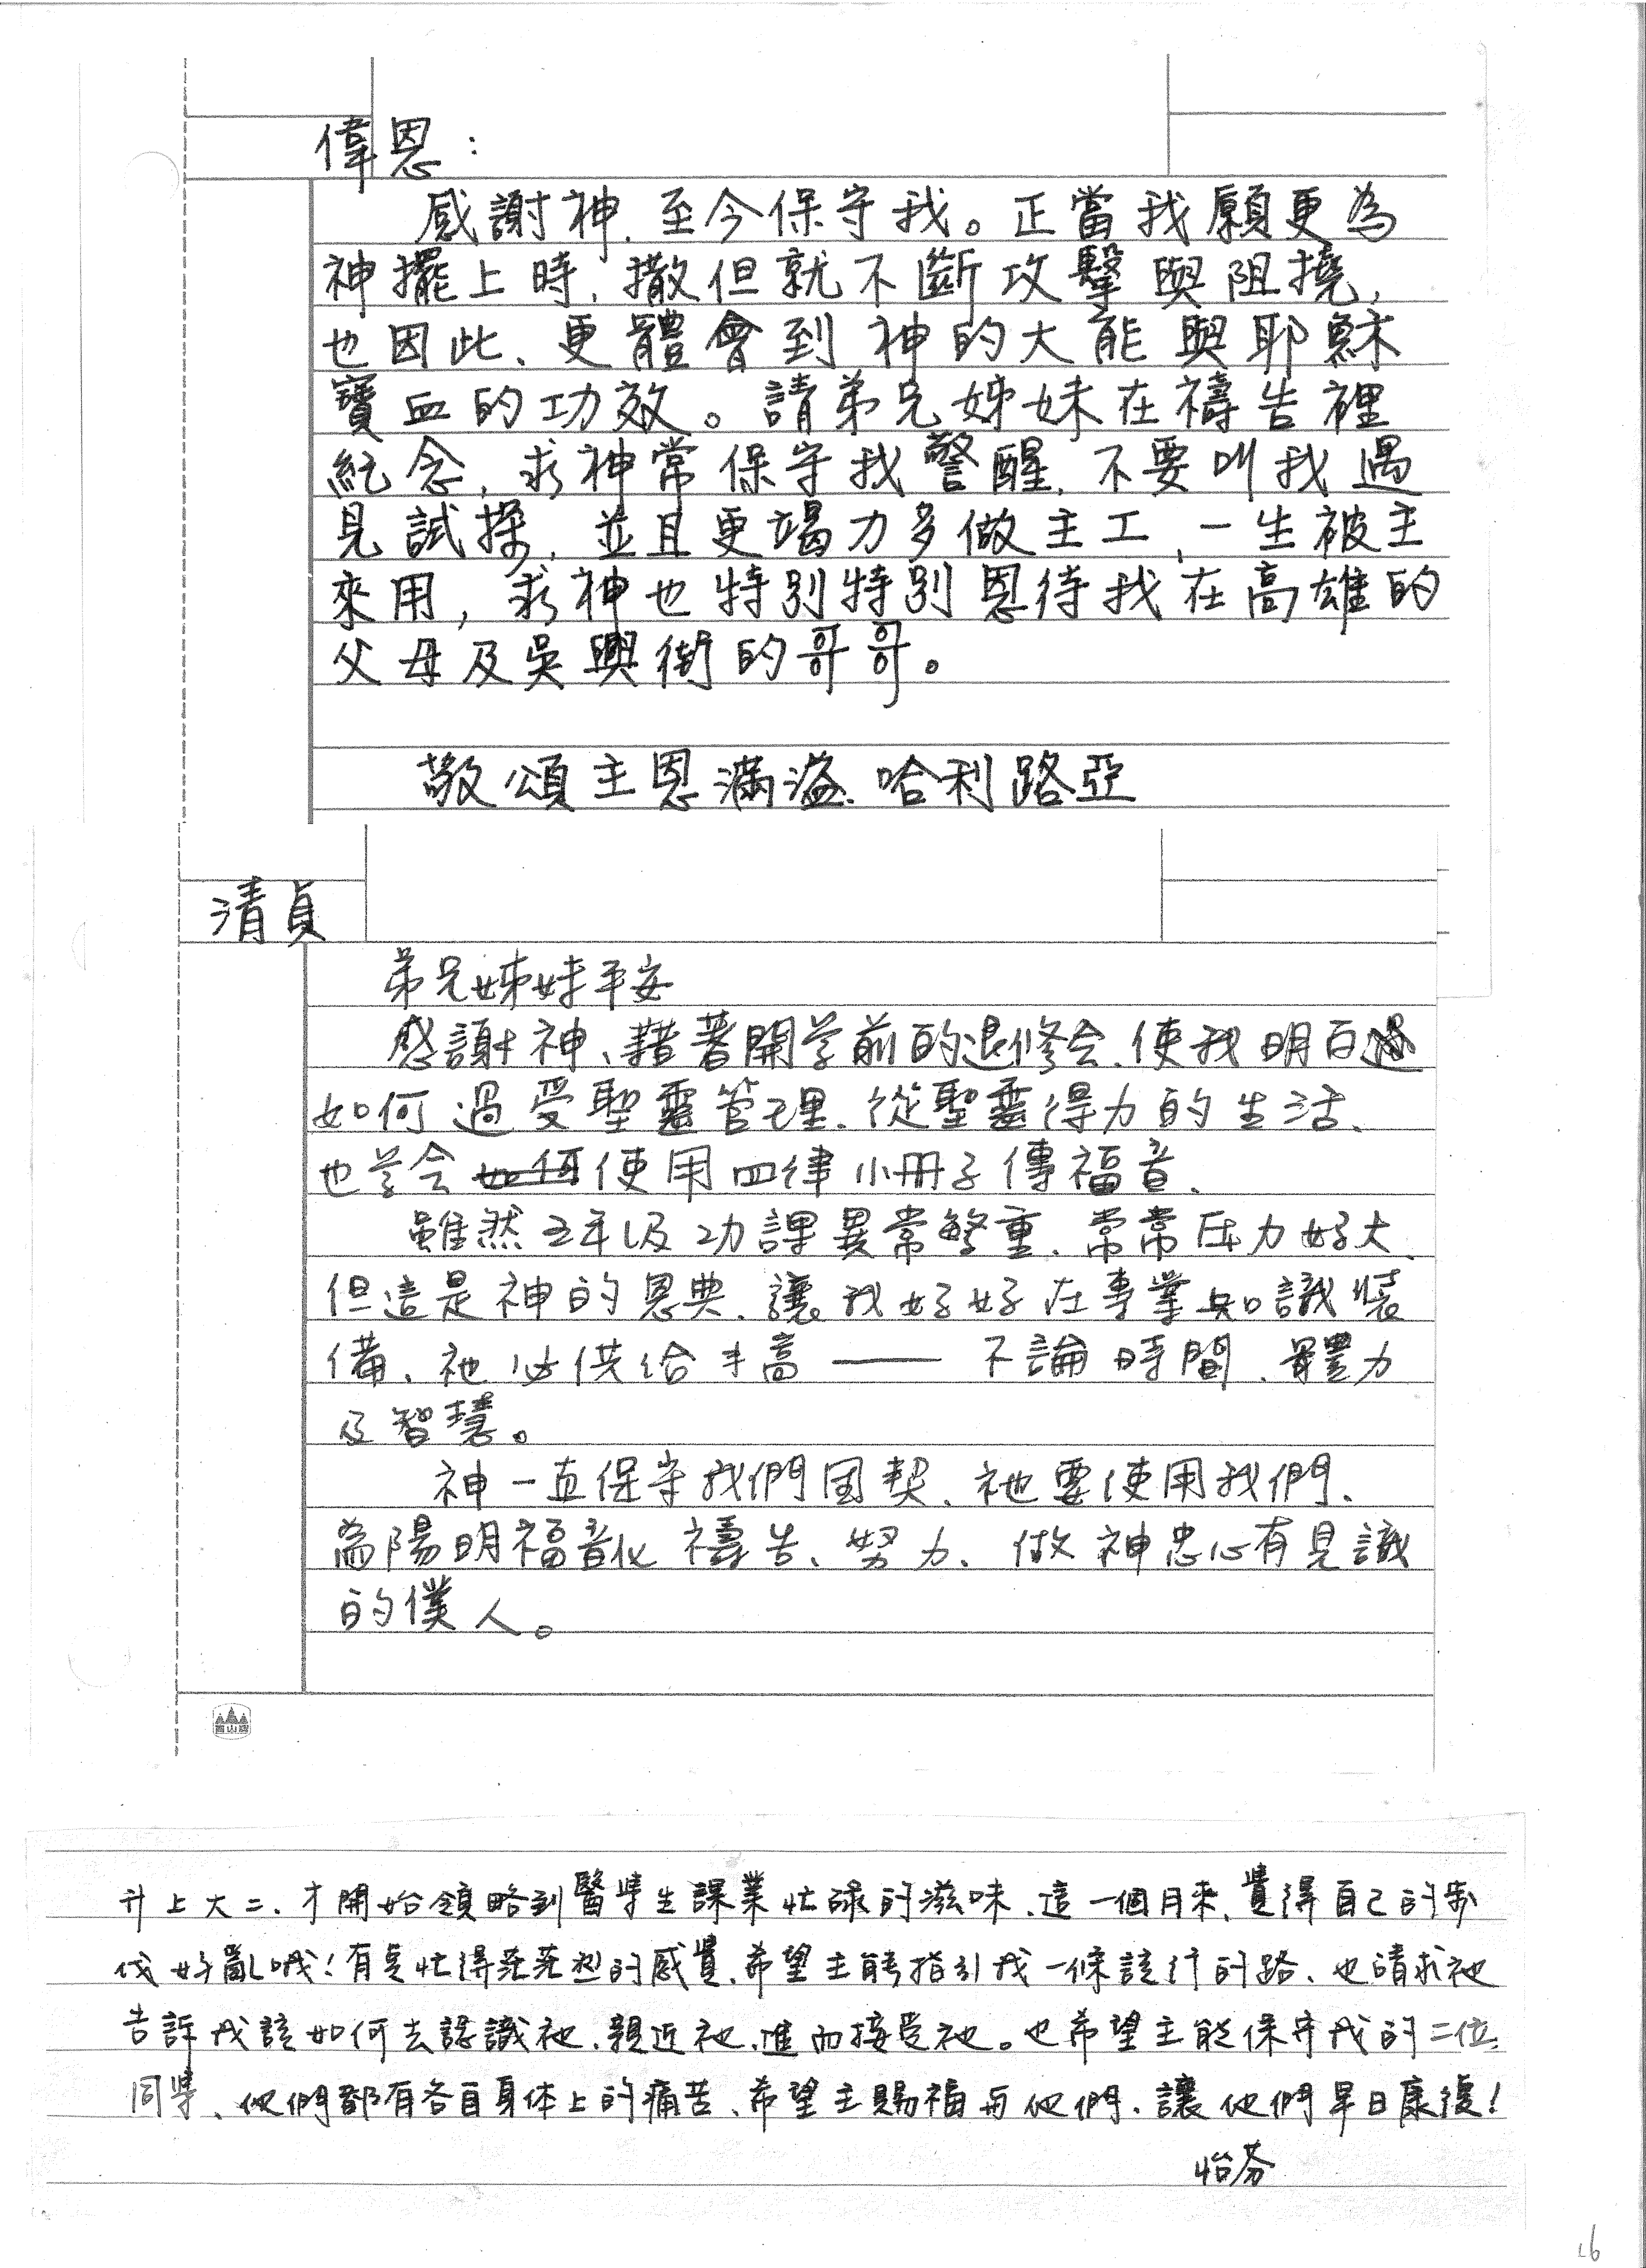 偉恩：
感謝神、至今保守我。正當我願更為
神擺上時，撒但就不斷攻擊與阻撓，
也因此、更體會到神的大能與耶穌
寶血的功效。請弟兄姊妹在禱告裡
紀念，求神常保守我警醒，不要叫我遇
見試探，並且更竭力多做主工，一生被主
來用，求神也特別特別恩待我在高雄的
父母及吳興街的哥哥。
敬頌主恩滿溢、哈利路亞
清貞
弟兄姊妹平安
感謝神、藉著開学前的退修会、使我明白
如何過受聖靈管理、從聖靈得力的生活、
也学会使用四律小冊子傳福音、
雖然五年級功課異常繁重、常常压力好大、
但這是神的恩典、讓我好好在專業知識裝
備、祂必供給丰富——不論時間、體力
及智慧。
神一直保守我們团契、祂要使用我們、
為陽明福音化禱告、努力、做神忠心有見識
的僕人。
升上大二、才開始領略到醫學生課業忙碌的滋味、這一個月來、覺得自己的步
伐好亂哦！有忙得茫茫然的感覺、希望主能指引我一條該行的路、也請求祂
告訴我該如何去認識祂、親近祂、進而接受祂。也希望主能保守我的二位
同學、他們都有各自身体上的痛苦、希望主賜福与他們、讓他們早日康復！
怡芬
16